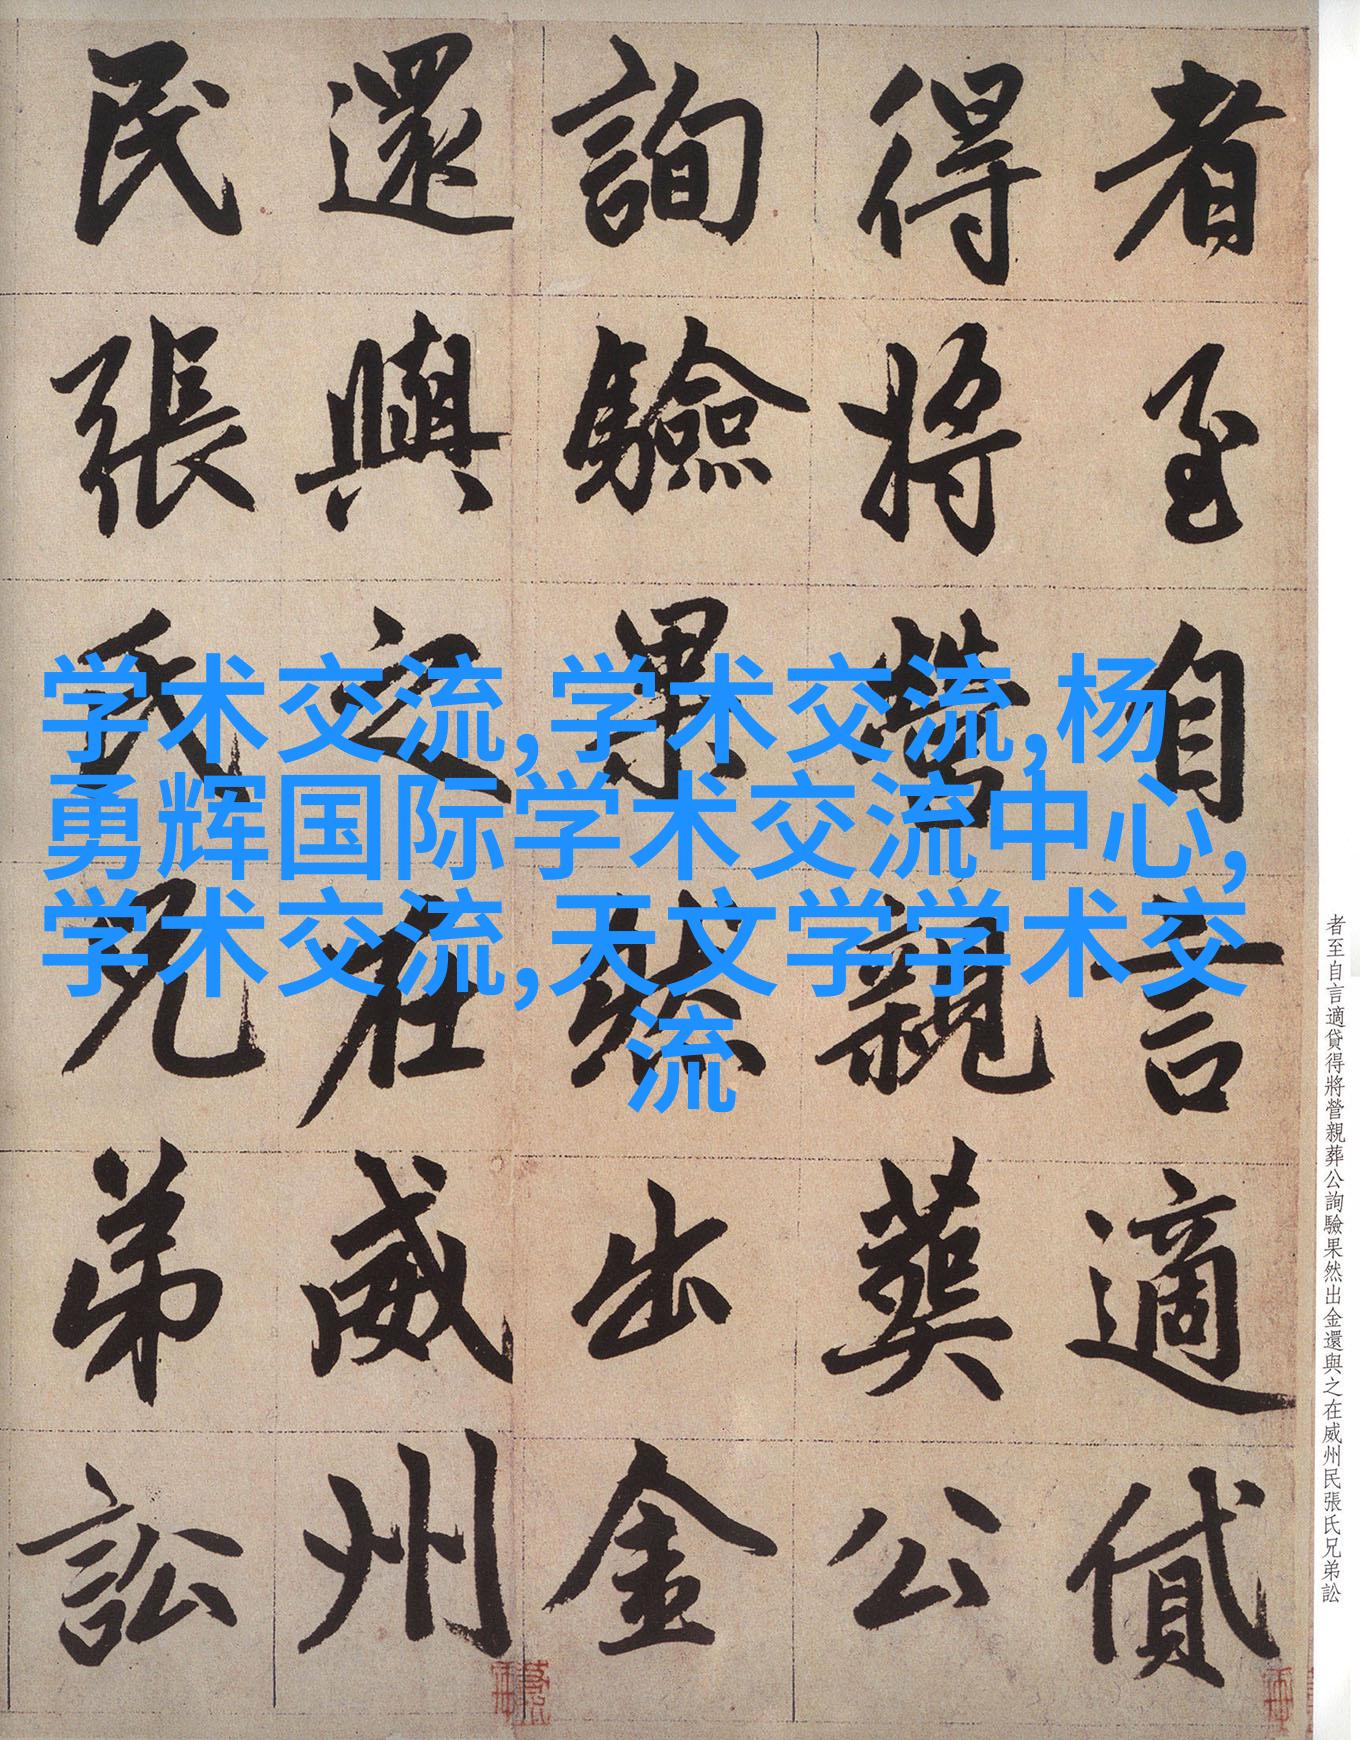 者至自言適貸
得將營親葬公
詢驗果然出金
還與之在威州
民張氏兄弟訟
学术交流,学术交流,杨
勇辉国际学术交流中心,
学术交流,天文学学术交
流
者至自言適貸得將營親葬公詢驗果然出金還與之在威州民張氏兄弟訟